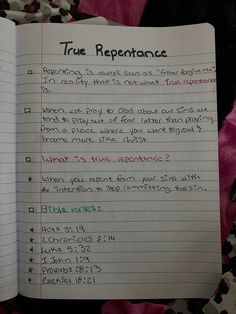 True Repentance
Repenting is always seen as "father forgive me"
In reality that is not what true repentance
is.
When we pray to God about our sins we
tend to pray out of fear rather than praying
from a place where you want to grow &
become more like Christ
What is true repentance?
When you repent from your sins with
the intention to stop committing that sin.
Bible verses:
Acts 3:19
2 Chronicles 7:14
Luke 5:32
1 John 1:9
Proverbs 28:13
Ezekiel 18:21